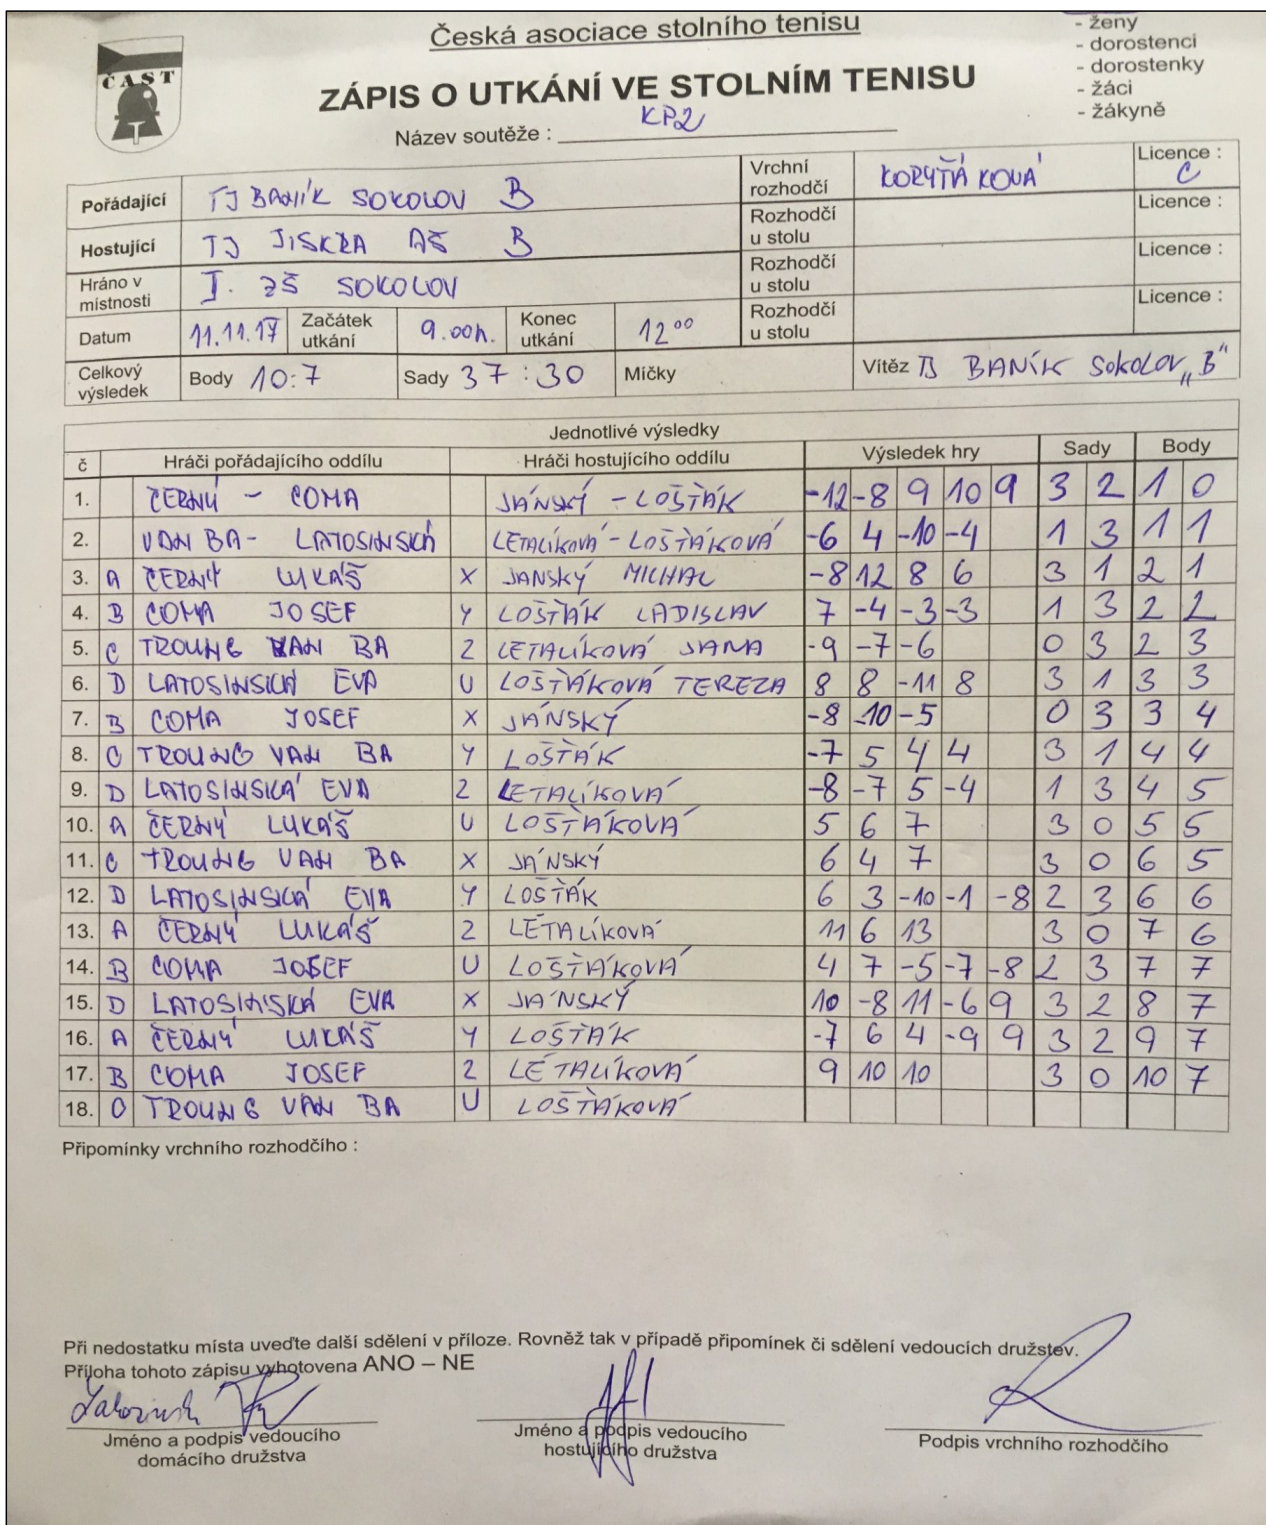 Česká asociace stolního tenisu
- ženy
- dorostenci
- dorostenky
- žáci
- žákyně
ČAST
ZÁPIS O UTKÁNÍ VE STOLNÍM TENISU
Název soutěže : KP2
Pořádající TJ BANÍK SOKOLOV B Vrchní rozhodčí KORYŤÁKOVÁ Licence : C
Hostující TJ JISKRA AŠ B Rozhodčí u stolu Licence :
Hráno v místnosti I. ZŠ SOKOLOV Rozhodčí u stolu Licence :
Datum 11.11.17 Začátek utkání 9.00h. Konec utkání 12⁰⁰ Rozhodčí u stolu Licence :
Celkový výsledek Body 10:7 Sady 37:30 Míčky Vítěz TJ BANÍK SOKOLOV „B"
Jednotlivé výsledky
č Hráči pořádajícího oddílu Hráči hostujícího oddílu Výsledek hry Sady Body
1. ČERNÝ - COMA JÁNSKÝ - LOŠŤÁK -12 -8 9 10 9 3 2 1 0
2. VAN BA - LATOSINSKÁ LETALÍKOVÁ - LOŠŤÁKOVÁ -6 4 -10 -4 1 3 1 1
3. A ČERNÝ LUKÁŠ X JANSKÝ MICHAL -8 12 8 6 3 1 2 1
4. B COMA JOSEF Y LOŠŤÁK LADISLAV 7 -4 -3 -3 1 3 2 2
5. C TROUNG VAN BA Z LETALÍKOVÁ JANA -9 -7 -6 0 3 2 3
6. D LATOSINSKÁ EVA U LOŠŤÁKOVÁ TEREZA 8 8 -11 8 3 1 3 3
7. B COMA JOSEF X JÁNSKÝ -8 -10 -5 0 3 3 4
8. C TROUNG VAN BA Y LOŠŤÁK -7 5 4 4 3 1 4 4
9. D LATOSINSKÁ EVA Z LETALÍKOVÁ -8 -7 5 -4 1 3 4 5
10. A ČERNÝ LUKÁŠ U LOŠŤÁKOVÁ 5 6 7 3 0 5 5
11. C TROUNG VAN BA X JÁNSKÝ 6 4 7 3 0 6 5
12. D LATOSINSKÁ EVA Y LOŠŤÁK 6 3 -10 -1 -8 2 3 6 6
13. A ČERNÝ LUKÁŠ Z LETALÍKOVÁ 11 6 13 3 0 7 6
14. B COMA JOSEF U LOŠŤÁKOVÁ 4 7 -5 -7 -8 2 3 7 7
15. D LATOSINSKÁ EVA X JÁNSKÝ 10 -8 11 -6 9 3 2 8 7
16. A ČERNÝ LUKÁŠ Y LOŠŤÁK -7 6 4 -9 9 3 2 9 7
17. B COMA JOSEF Z LETALÍKOVÁ 9 10 10 3 0 10 7
18. C TROUNG VAN BA U LOŠŤÁKOVÁ
Připomínky vrchního rozhodčího :
Při nedostatku místa uveďte další sdělení v příloze. Rovněž tak v případě připomínek či sdělení vedoucích družstev.
Příloha tohoto zápisu vyhotovena ANO – NE
Jméno a podpis vedoucího domácího družstva
Jméno a podpis vedoucího hostujícího družstva
Podpis vrchního rozhodčího